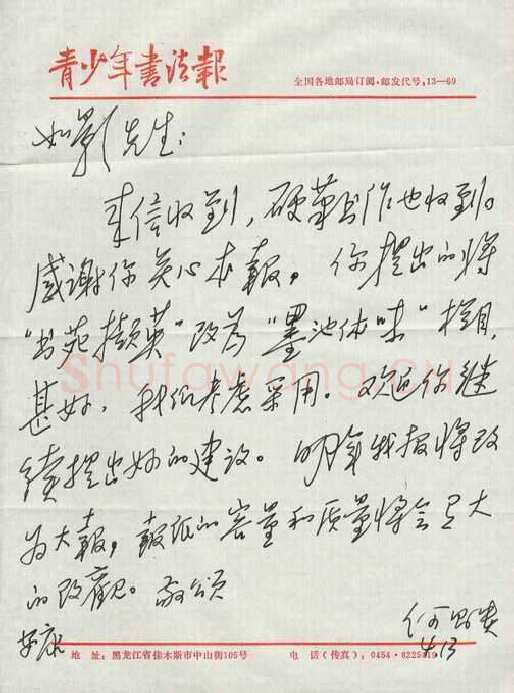 青少年书法報
全国各地邮局订阅·邮发代号,13—69
如影先生:
来信收到,硬筆书作也收到。
感谢你关心本報。你提出的将
“书苑撷英”改为“墨池体味”栏目,
甚好,我们考虑采用。欢迎你继
续提出好的建设。明年我报将改
为大報,報纸的容量和质量将会有大
的改觀。敬颂
安康
何
4.13
地 址:黑龙江省佳木斯市中山街105号 电 话(传真),0454-8225419
Shufawang.cn